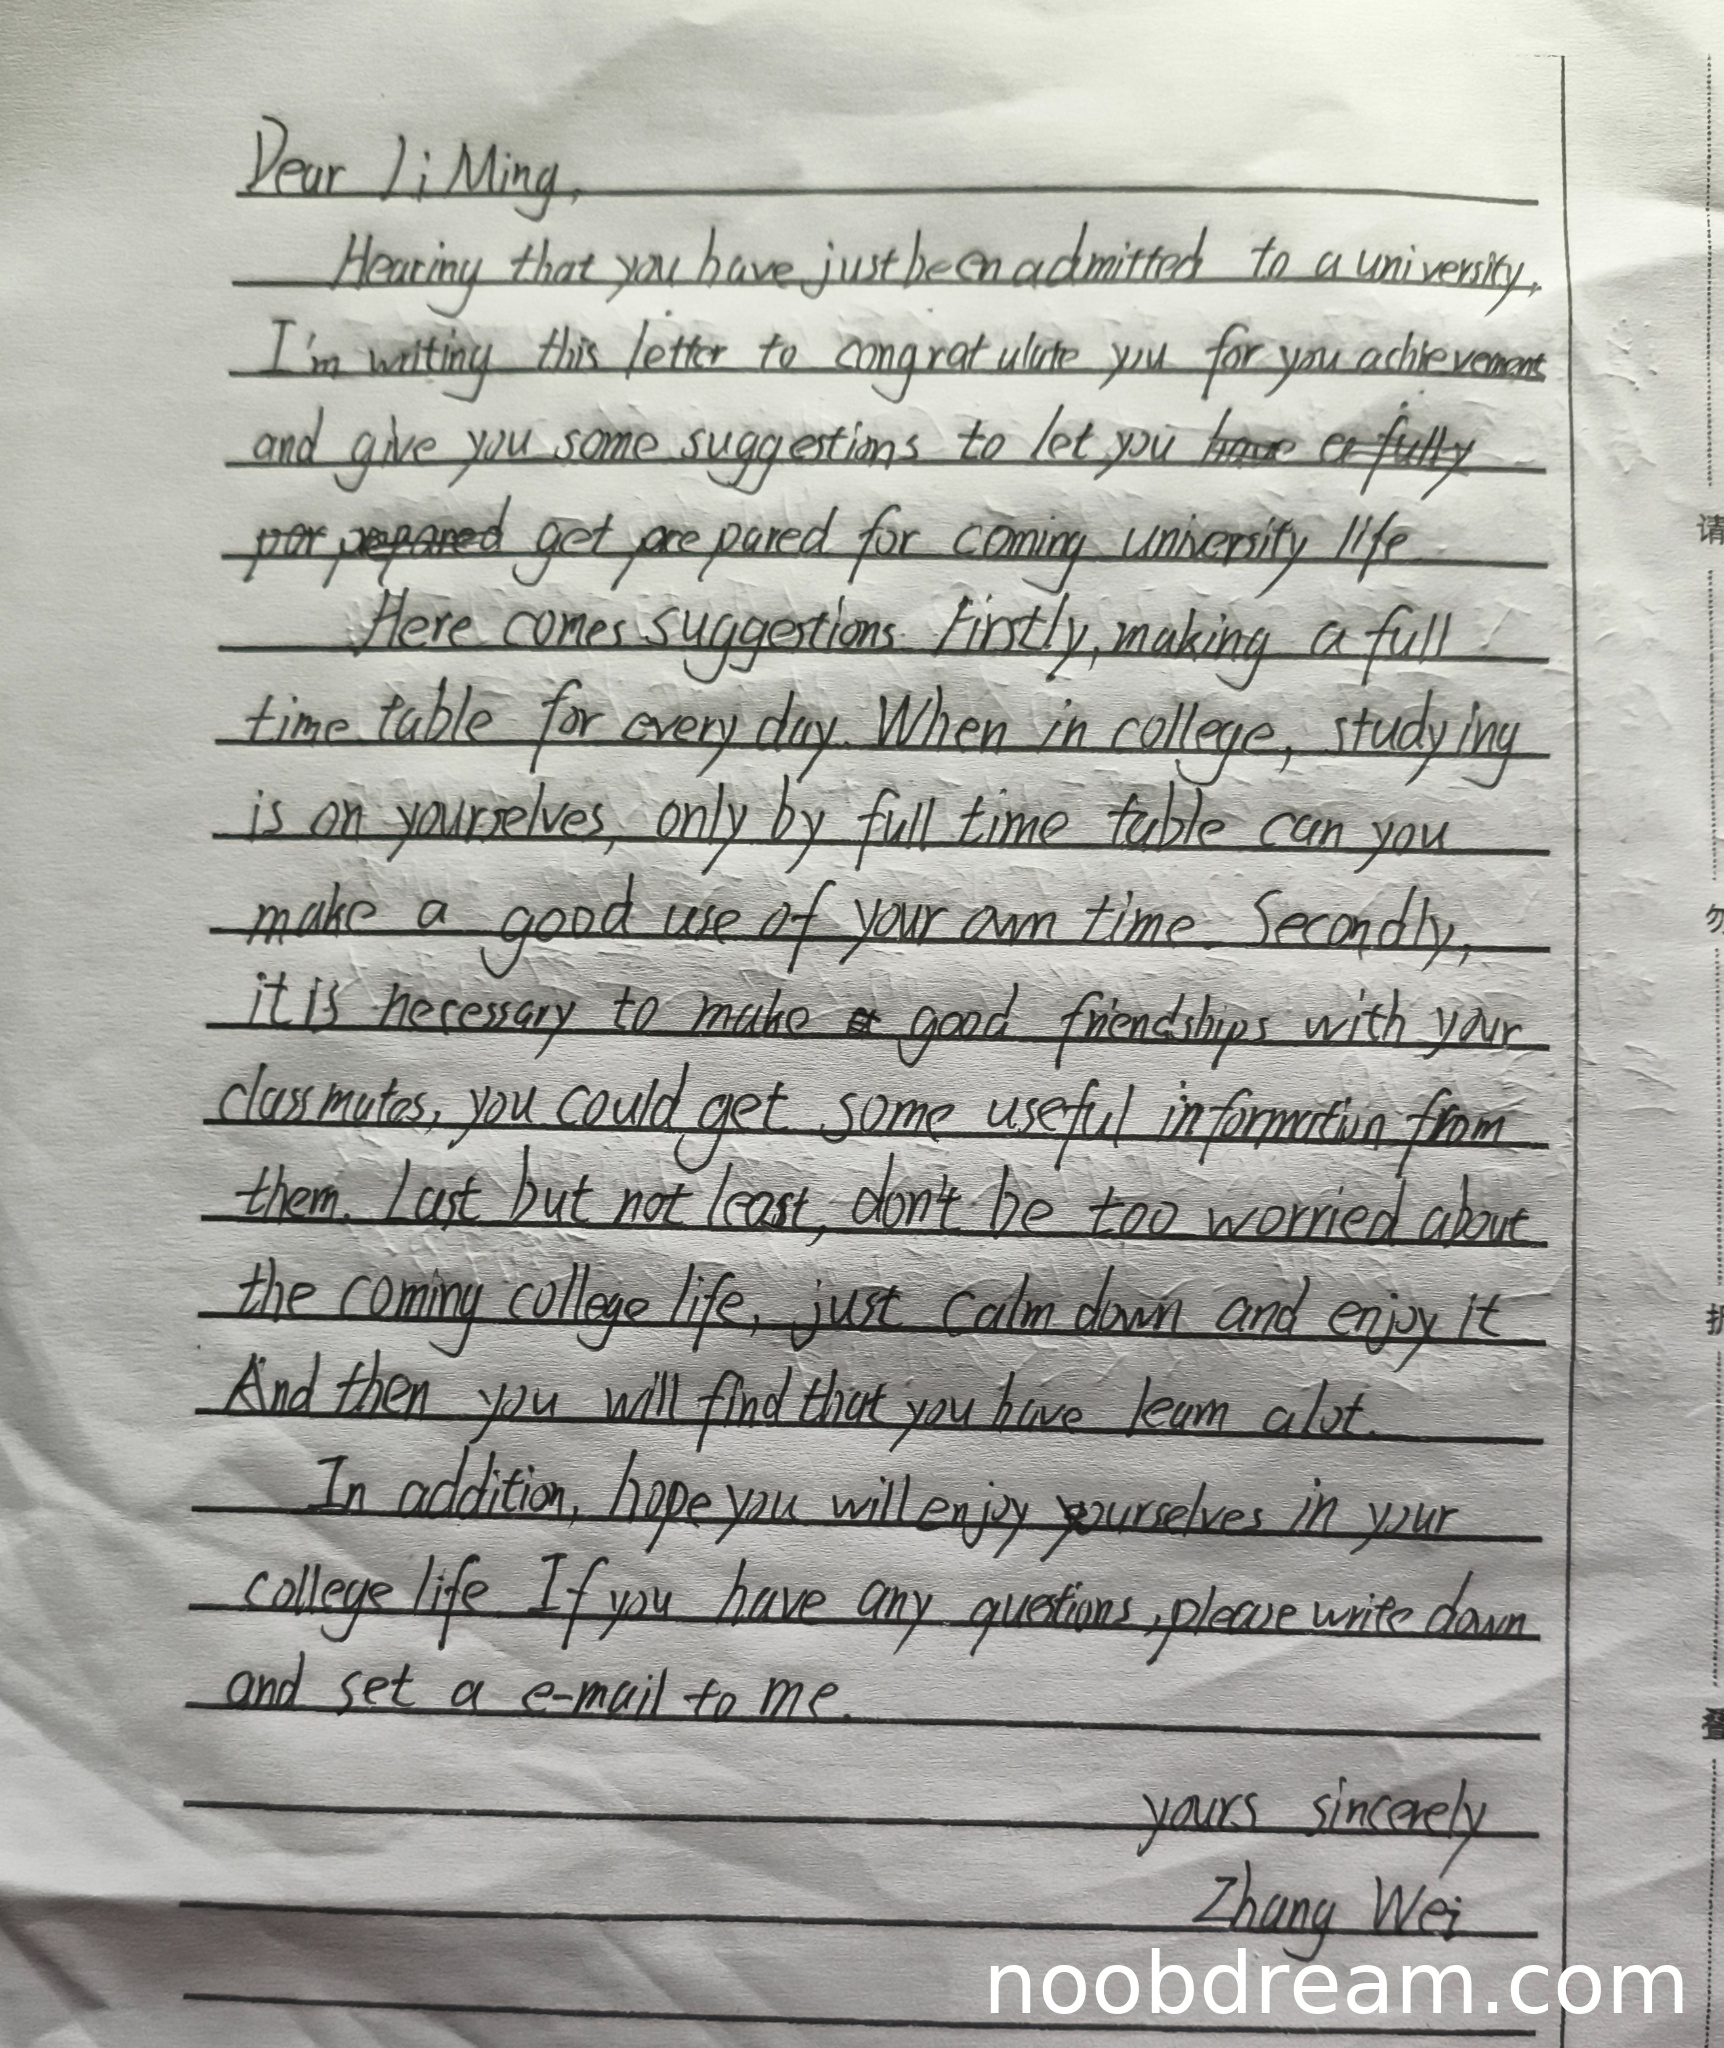 Dear Li Ming,
Hearing that you have just been admitted to a university,
I'm writing this letter to congratulate you for you achievement
and give you some suggestions to let you have fully
prepared get prepared for coming university life
Here comes suggestions. Firstly, making a full
time table for every day. When in college, studying
is on yourselves, only by full time table can you
make a good use of your own time. Secondly,
it is necessary to make a good friendships with your
classmates, you could get some useful information from
them. Last but not least, don't be too worried about
the coming college life, just calm down and enjoy it
And then you will find that you have learn a lot.
In addition, hope you will enjoy yourselves in your
college life. If you have any questions, please write down
and set a e-mail to me.
yours sincerely
Zhang Wei
noobdream.com
请
勿
折
叠